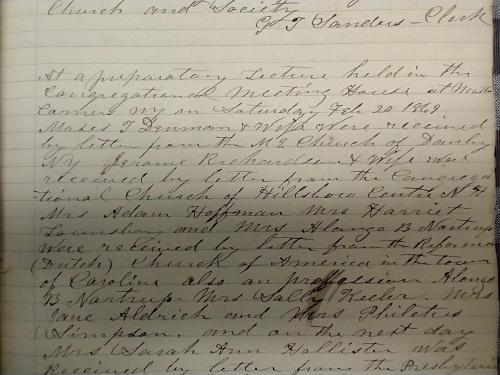 Church and Society
G T Sanders - Clerk
At a preparatory Lecture held in the
Congregational Meeting House at
Corners NY on Saturday Feb 20 1869
Moses T Denman & Wife were received
by letter from the M. E Church of Danby
NY Jerome Richardson & Wife were
received by letter from the Congrega
tional Church of Hillsboro Centre N H
Mrs Adam Hoffman Mrs Harriet
Lounsbery and Mrs Alonzo B Nortrup
Were received by letter from the Reformed
(Dutch) Church of America in the town
of Caroline also on profession Alonzo
B Nortrup - Mrs Sally Keeler. Mrs
Jane Aldrich and Mrs Philetus
Simpson, and on the next day
Mrs Sarah Ann Hollister was
Received by letter from the Presbyterian